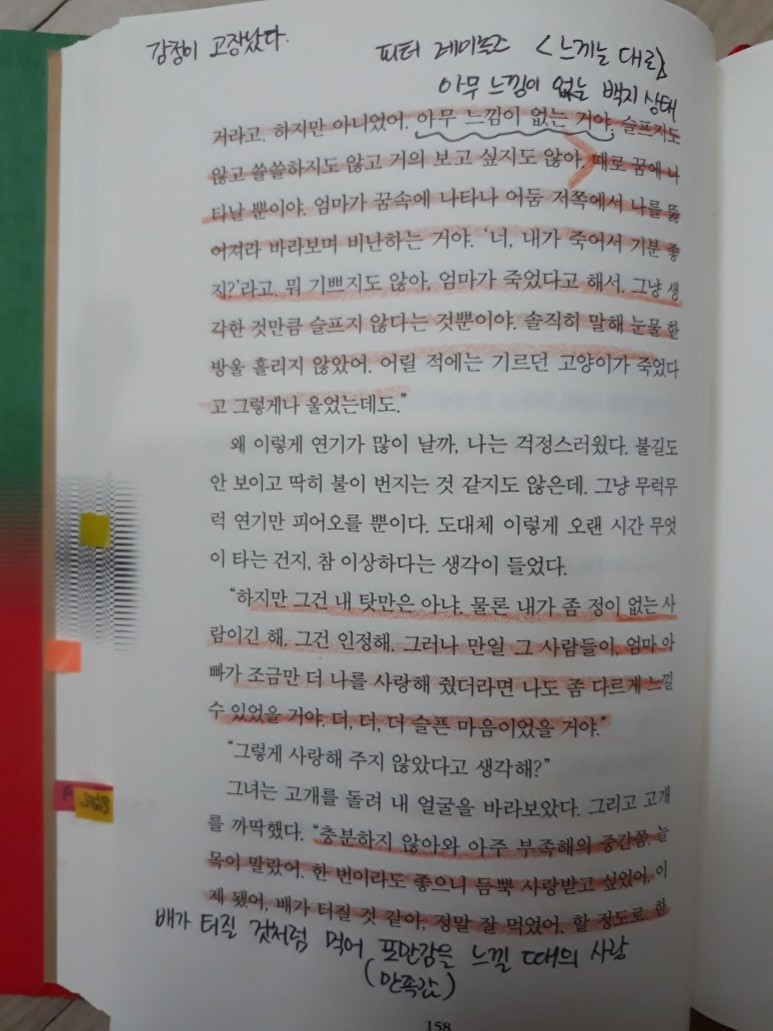 감정이 고장났다.
피터 레이놀즈 <느끼는 대로>
아무 느낌이 없는 백지 상태
거라고. 하지만 아니었어. 아무 느낌이 없는 거야. 슬프지도
않고 쓸쓸하지도 않고 거의 보고 싶지도 않아. 때로 꿈에 나
타날 뿐이야. 엄마가 꿈속에 나타나 어둠 저쪽에서 나를 뚫
어져라 바라보며 비난하는 거야. ‘너, 내가 죽어서 기분 좋
지?’라고. 뭐 기쁘지도 않아, 엄마가 죽었다고 해서. 그냥 생
각한 것만큼 슬프지 않다는 것뿐이야. 솔직히 말해 눈물 한
방울 흘리지 않았어. 어릴 적에는 기르던 고양이가 죽었다
고 그렇게나 울었는데도.”
왜 이렇게 연기가 많이 날까, 나는 걱정스러웠다. 불길도
안 보이고 딱히 불이 번지는 것 같지도 않은데. 그냥 무럭무
럭 연기만 피어오를 뿐이다. 도대체 이렇게 오랜 시간 무엇
이 타는 건지, 참 이상하다는 생각이 들었다.
“하지만 그건 내 탓만은 아냐. 물론 내가 좀 정이 없는 사
람이긴 해. 그건 인정해. 그러나 만일 그 사람들이, 엄마 아
빠가 조금만 더 나를 사랑해 줬더라면 나도 좀 다르게 느낄
수 있었을 거야. 더, 더, 더 슬픈 마음이었을 거야.”
“그렇게 사랑해 주지 않았다고 생각해?”
그녀는 고개를 돌려 내 얼굴을 바라보았다. 그리고 고개
를 까딱했다. “충분하지 않아와 아주 부족해의 중간쯤. 늘
목이 말랐어. 한 번이라도 좋으니 듬뿍 사랑받고 싶었어. 이
제 됐어, 배가 터질 것 같아, 정말 잘 먹었어, 할 정도로. 한
배가 터질 것처럼 먹어 포만감을 느낄 때의 사랑
(만족감)
158